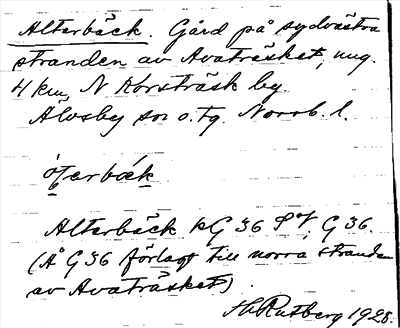 Alterbäck. Gård på sydvästra
stranden av Avaträsket, ung.
4 km N Korsträsk by.
Älvsby sn o. tg. Norrb. l.
Alterbäck kG 36 G 36.
(Å G 36 förlagt till norra stranden
av Avaträsket).
H. Rutberg 1928.